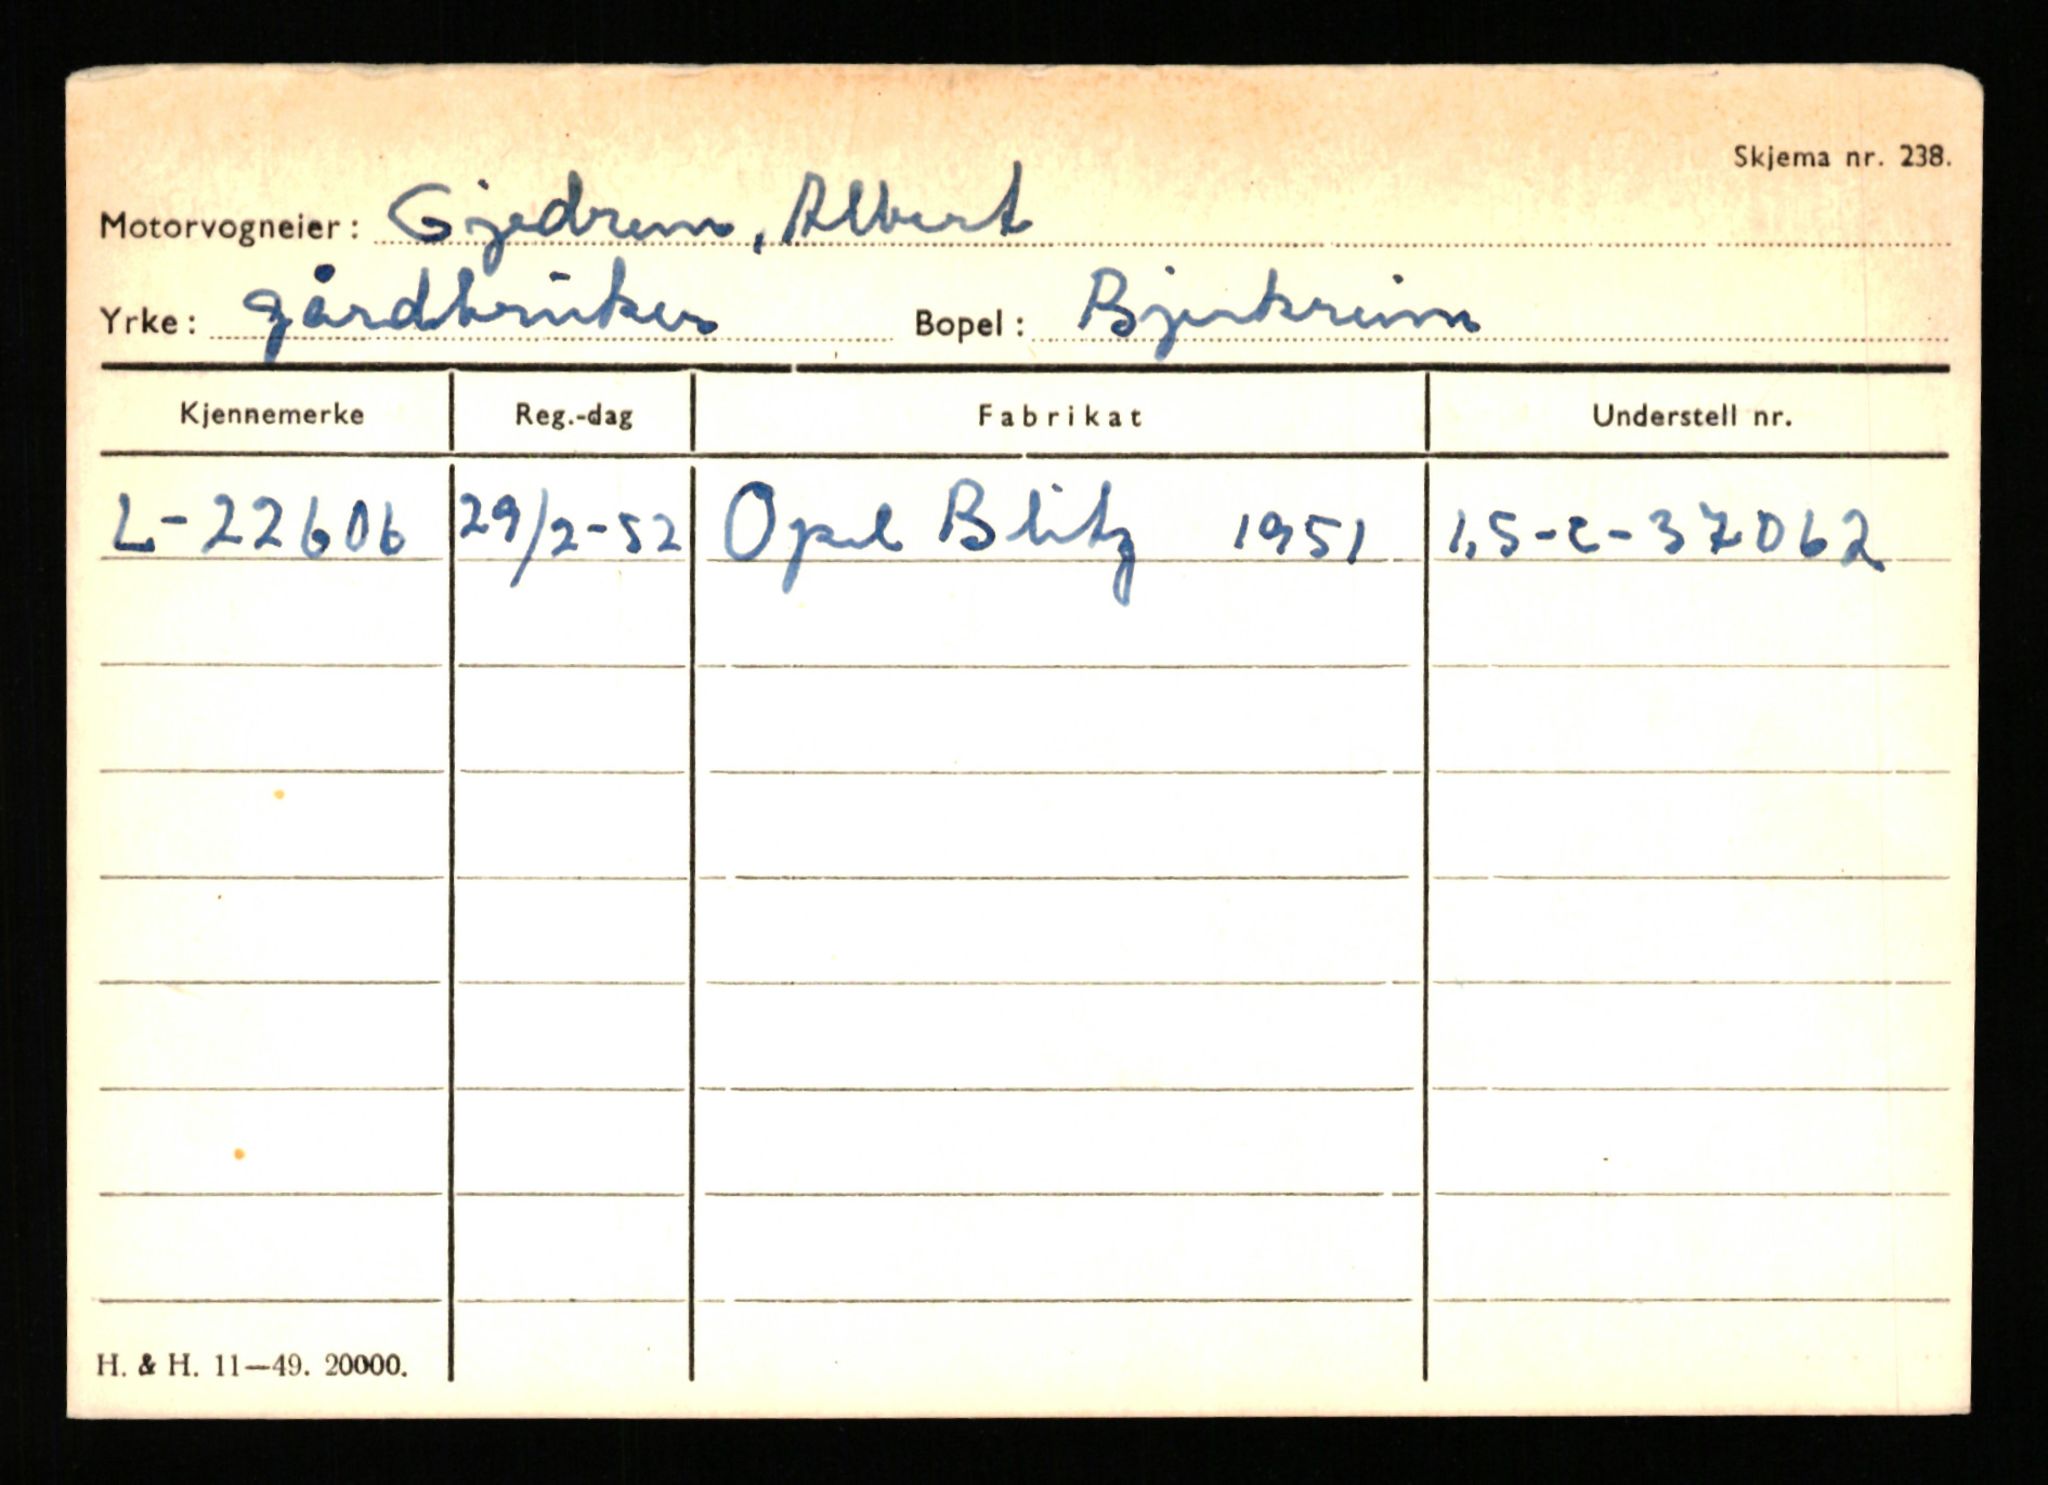 Skjema nr. 238.
Motorvogneier: Gjedrem, Albert
Yrke: gårdbruker Bopel: Bjerkreim
Kjennemerke Reg.-dag Fabrikat Understell nr.
L-22606 29/2-52 Opel Blitz 1951 1,5-2-37062
H. & H. 11—49. 20000.